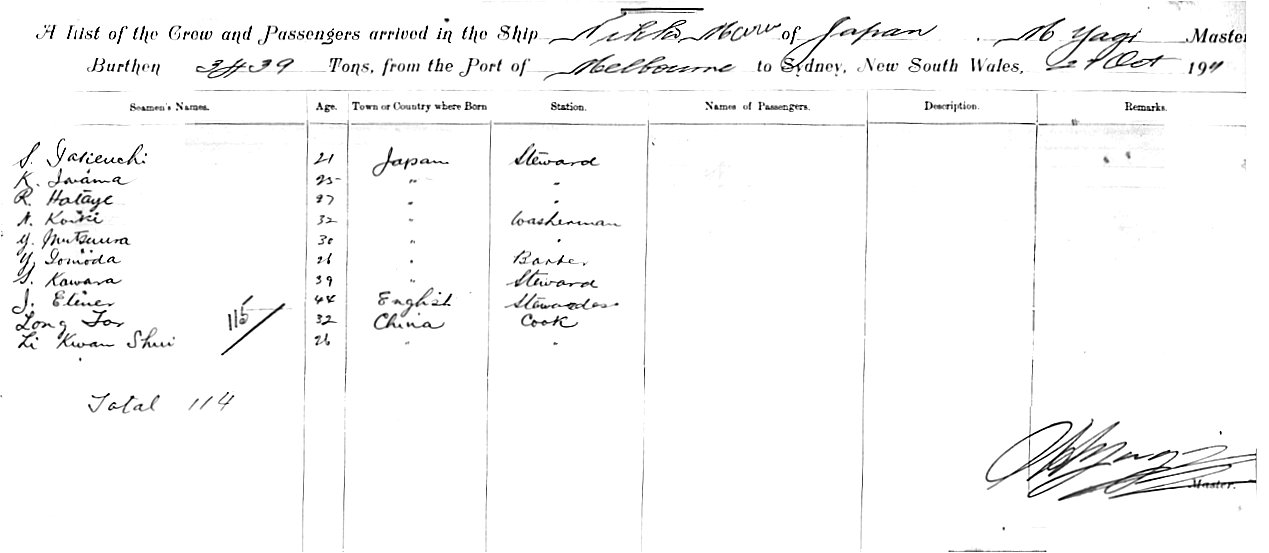 A List of the Crew and Passengers arrived in the Ship Nikko Maru of Japan . M Yagi Master
Burthen 3439 Tons, from the Port of Melbourne to Sydney, New South Wales, Oct 191
Seamen's Names. Age. Town or Country where Born Station. Names of Passengers. Description. Remarks.
S. 21 Japan Steward
K. Iwama 25 " "
R. Hataye 27 " "
N. Koiki 32 " Washerman
Y. Mutsuura 30 " "
Y. Tomoda 26 " Barber
S. Kawara 39 " Steward
J. 44 English Stewardess
Long For 32 China Cook
Li Kwan Shui 26 " "
115
Total 114
Master.